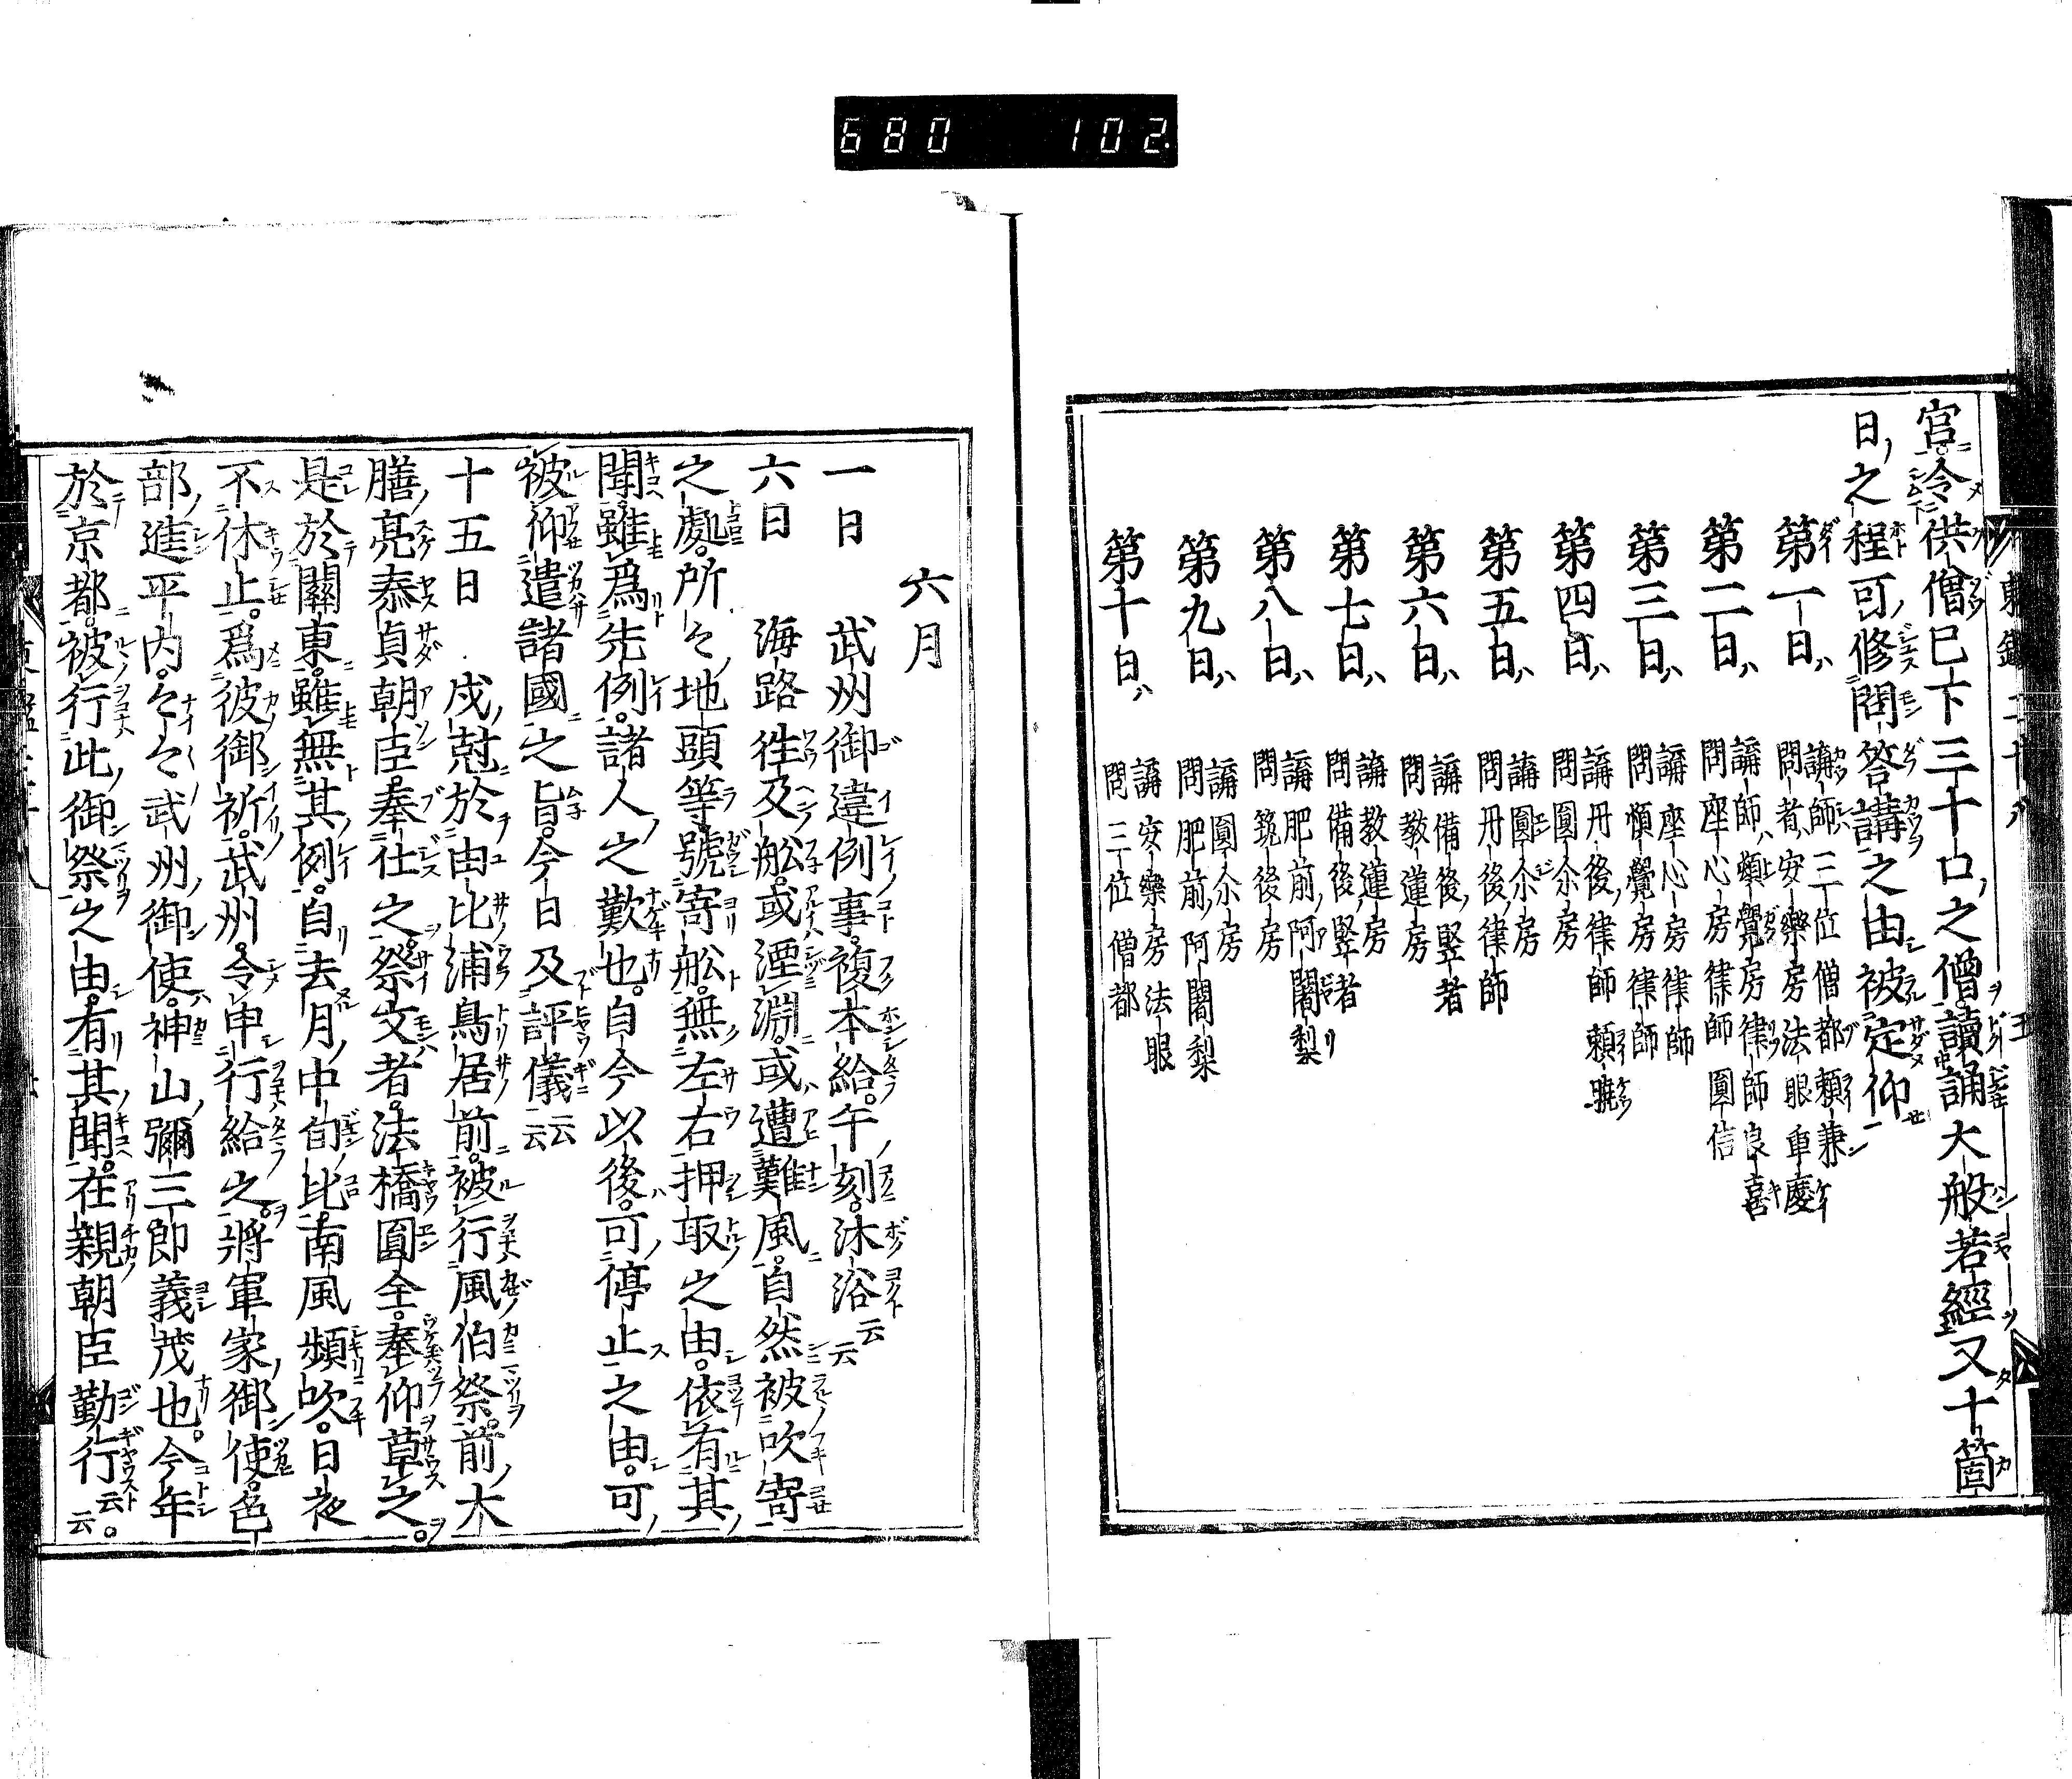 680 102
宮令供僧已下三十口之僧讀誦大般若經又十箇
日之程可修問答講之由被定仰
第一日 講師三位僧都頼兼
問者安樂房法眼重慶
第二日 講師頼覺房律師良喜
問座心房律師圓信
第三日 講座心房律師
問頼覺房律師
第四日 講丹後律師頼曉
問圓尒房
第五日 講圓尒房
問丹後律師
第六日 講備後竪者
問教蓮房
第七日 講教蓮房
問備後竪者
第八日 講肥前阿闍梨
問筑後房
第九日 講圓尒房
問肥前阿闍梨
第十日 講安樂房法眼
問三位僧都
六月
一日 武州御違例事複本給午刻沐浴云云
六日 海路往及舩或湮淵或遭難風自然被吹寄
之處所々地頭等號寄舩無左右押取之由依有其
聞雖爲先例諸人之歎也自今以後可停止之由可
被仰遣諸國之旨今日及評儀云云
十五日 戍尅於由比浦鳥居前被行風伯祭前大
膳亮泰貞朝臣奉仕之祭文者法橋圓全奉仰草之
是於關東雖無其例自去月中旬比南風頻吹日夜
不休止爲彼御祈武州令申行給之將軍家御使色
部進平内々々武州御使神山彌三郎義茂也今年
於京都被行此御祭之由有其聞在親朝臣勤行云云